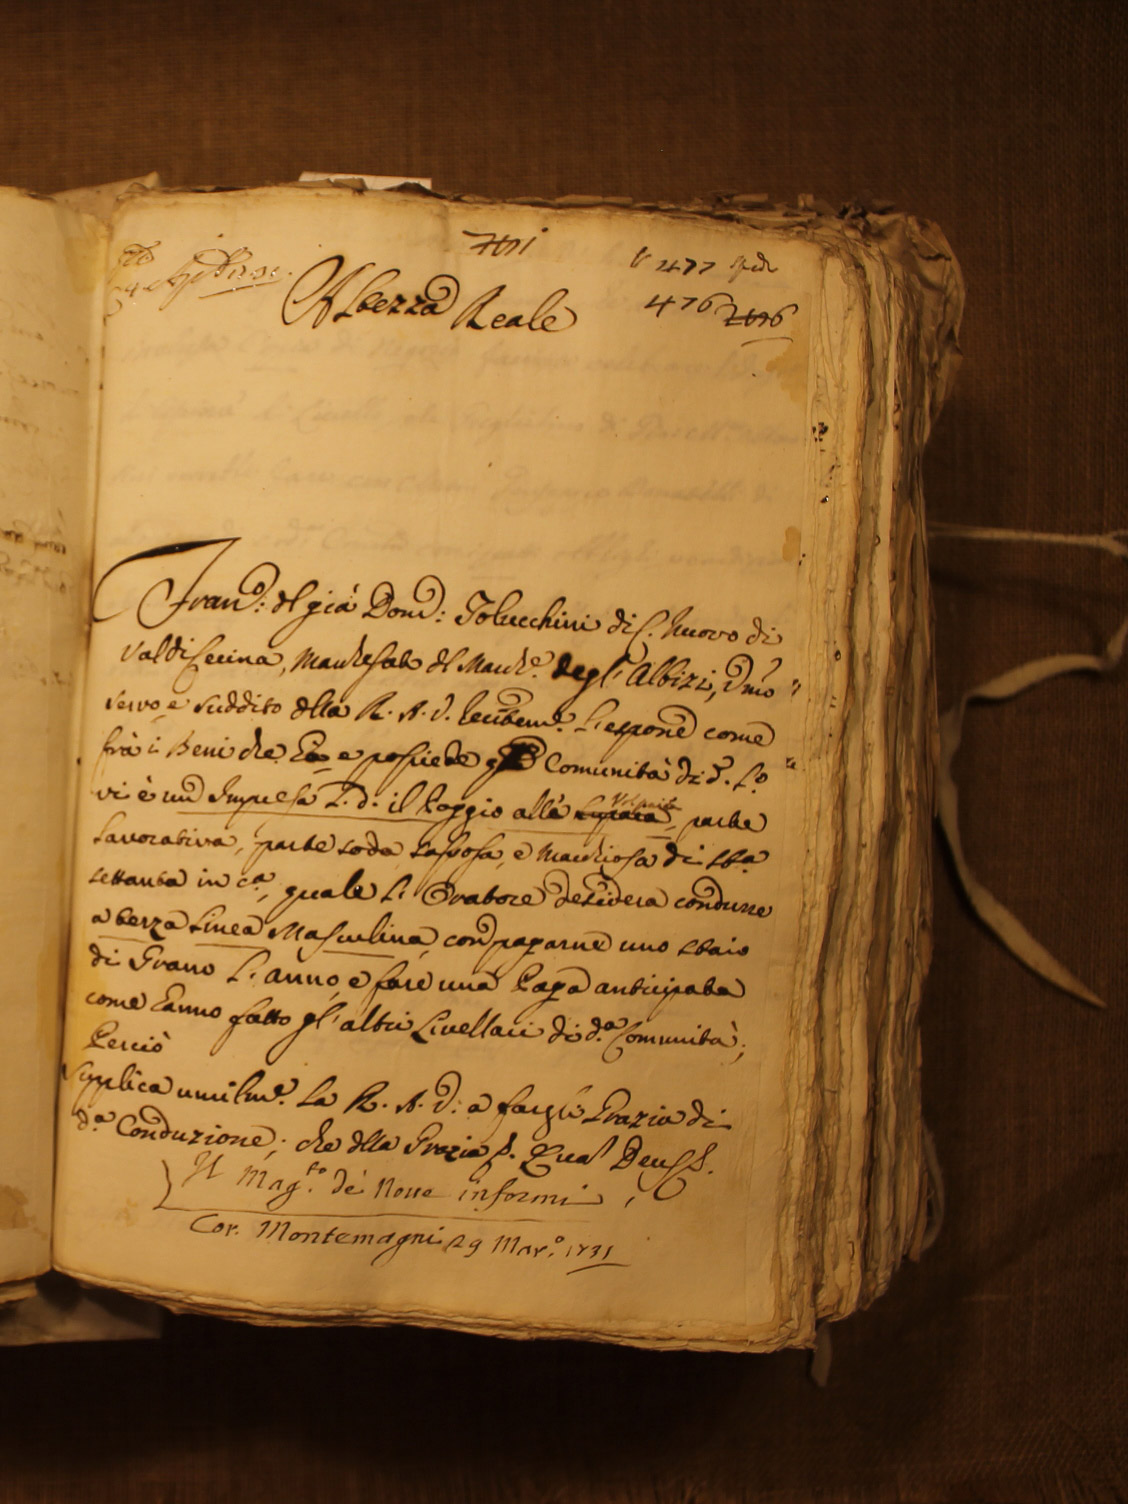 477
476
Altezza Reale
Fran.o: del già Dom.o: Tolucchini di C. Nuovo di
Val di Cecina, Marchesato del March.e degl'Albizi, Um.o
servo e suddito della R. A. V. le espone come
frà i Beni che e possiede Comunità di d. L.o
vi è un Impresa L. d. il Poggio alle Volpaie, parte
lavorativa, parte soda, sassosa, e macchiosa di sta
settanta in c.a, quale l'Oratore desidera condurre
a terza Linea Masculina, con pagarne uno staio
di Grano l'anno, e fare una Paga anticipata
come hanno fatto gl'altri Livellari di d.a Comunità;
Perciò
Supplica umilm.e la R. A. V.: a fargli Grazia di
d.a Conduzione; che della Grazia p. Quas Deus p.
Il Mag.to de Nove informi
Cor. Montemagni 29 Mar.o 1731